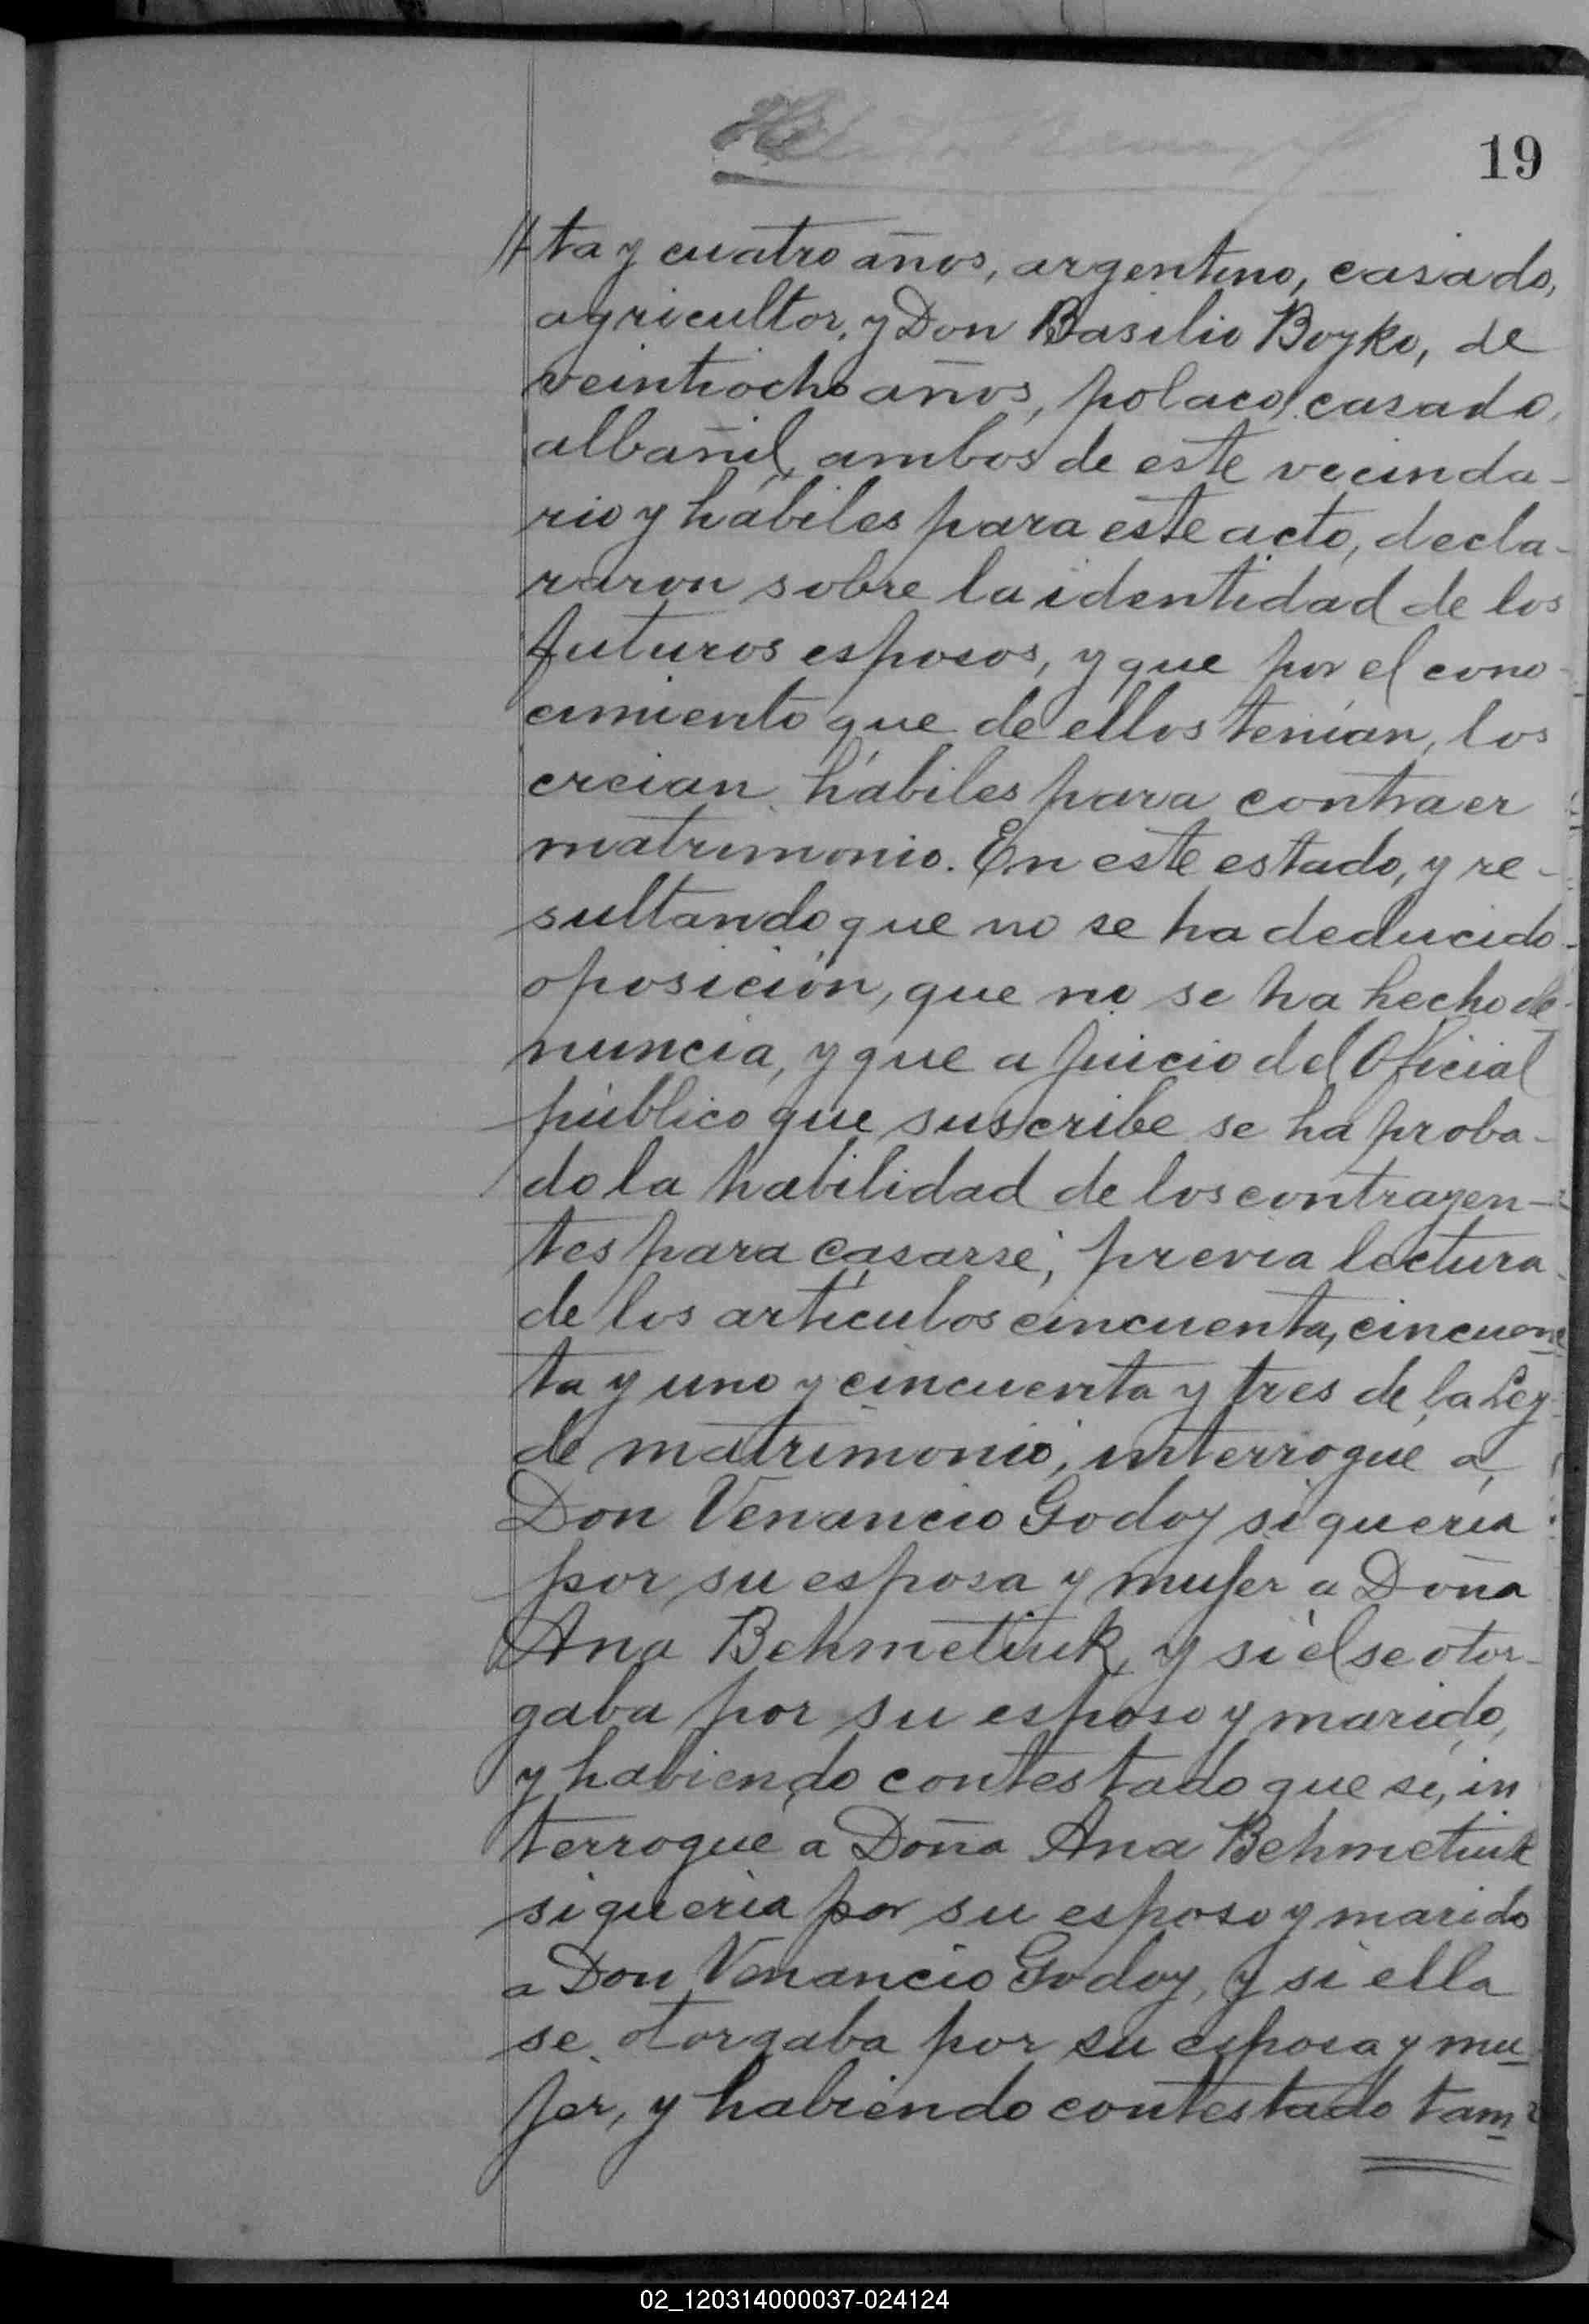 19
//ta y cuatro años, argentino, casado,
agricultor, y Don Basilio Boyko, de
veintiocho años, polaco, casado,
albañil, ambos de este vecinda-
rio y hábiles para este acto, decla-
raron sobre la identidad de los
futuros esposos, y que por el cono-
cimiento que de ellos tenían, los
creían hábiles para contraer
matrimonio. En este estado, y re-
sultando que no se ha deducido
oposición, que no se ha hecho de-
nuncia, y que a juicio del Oficial
público que suscribe se ha proba-
do la habilidad de los contrayen-
tes para casarse, previa lectura
de los artículos cincuenta, cincuen-
ta y uno y cincuenta y tres de la Ley
de matrimonio, interrogué a
Don Venancio Godoy si quería
por su esposa y mujer a Doña
Ana Behmetiuk, y si él se otor-
gaba por su esposo y marido,
y habiendo contestado que sí, in
terrogué a Doña Ana Behmetiuk
si quería por su esposo y marido
a Don Venancio Godoy, y si ella
se otorgaba por su esposa y mu-
jer, y habiendo contestado tam-
02_120314000037-024124